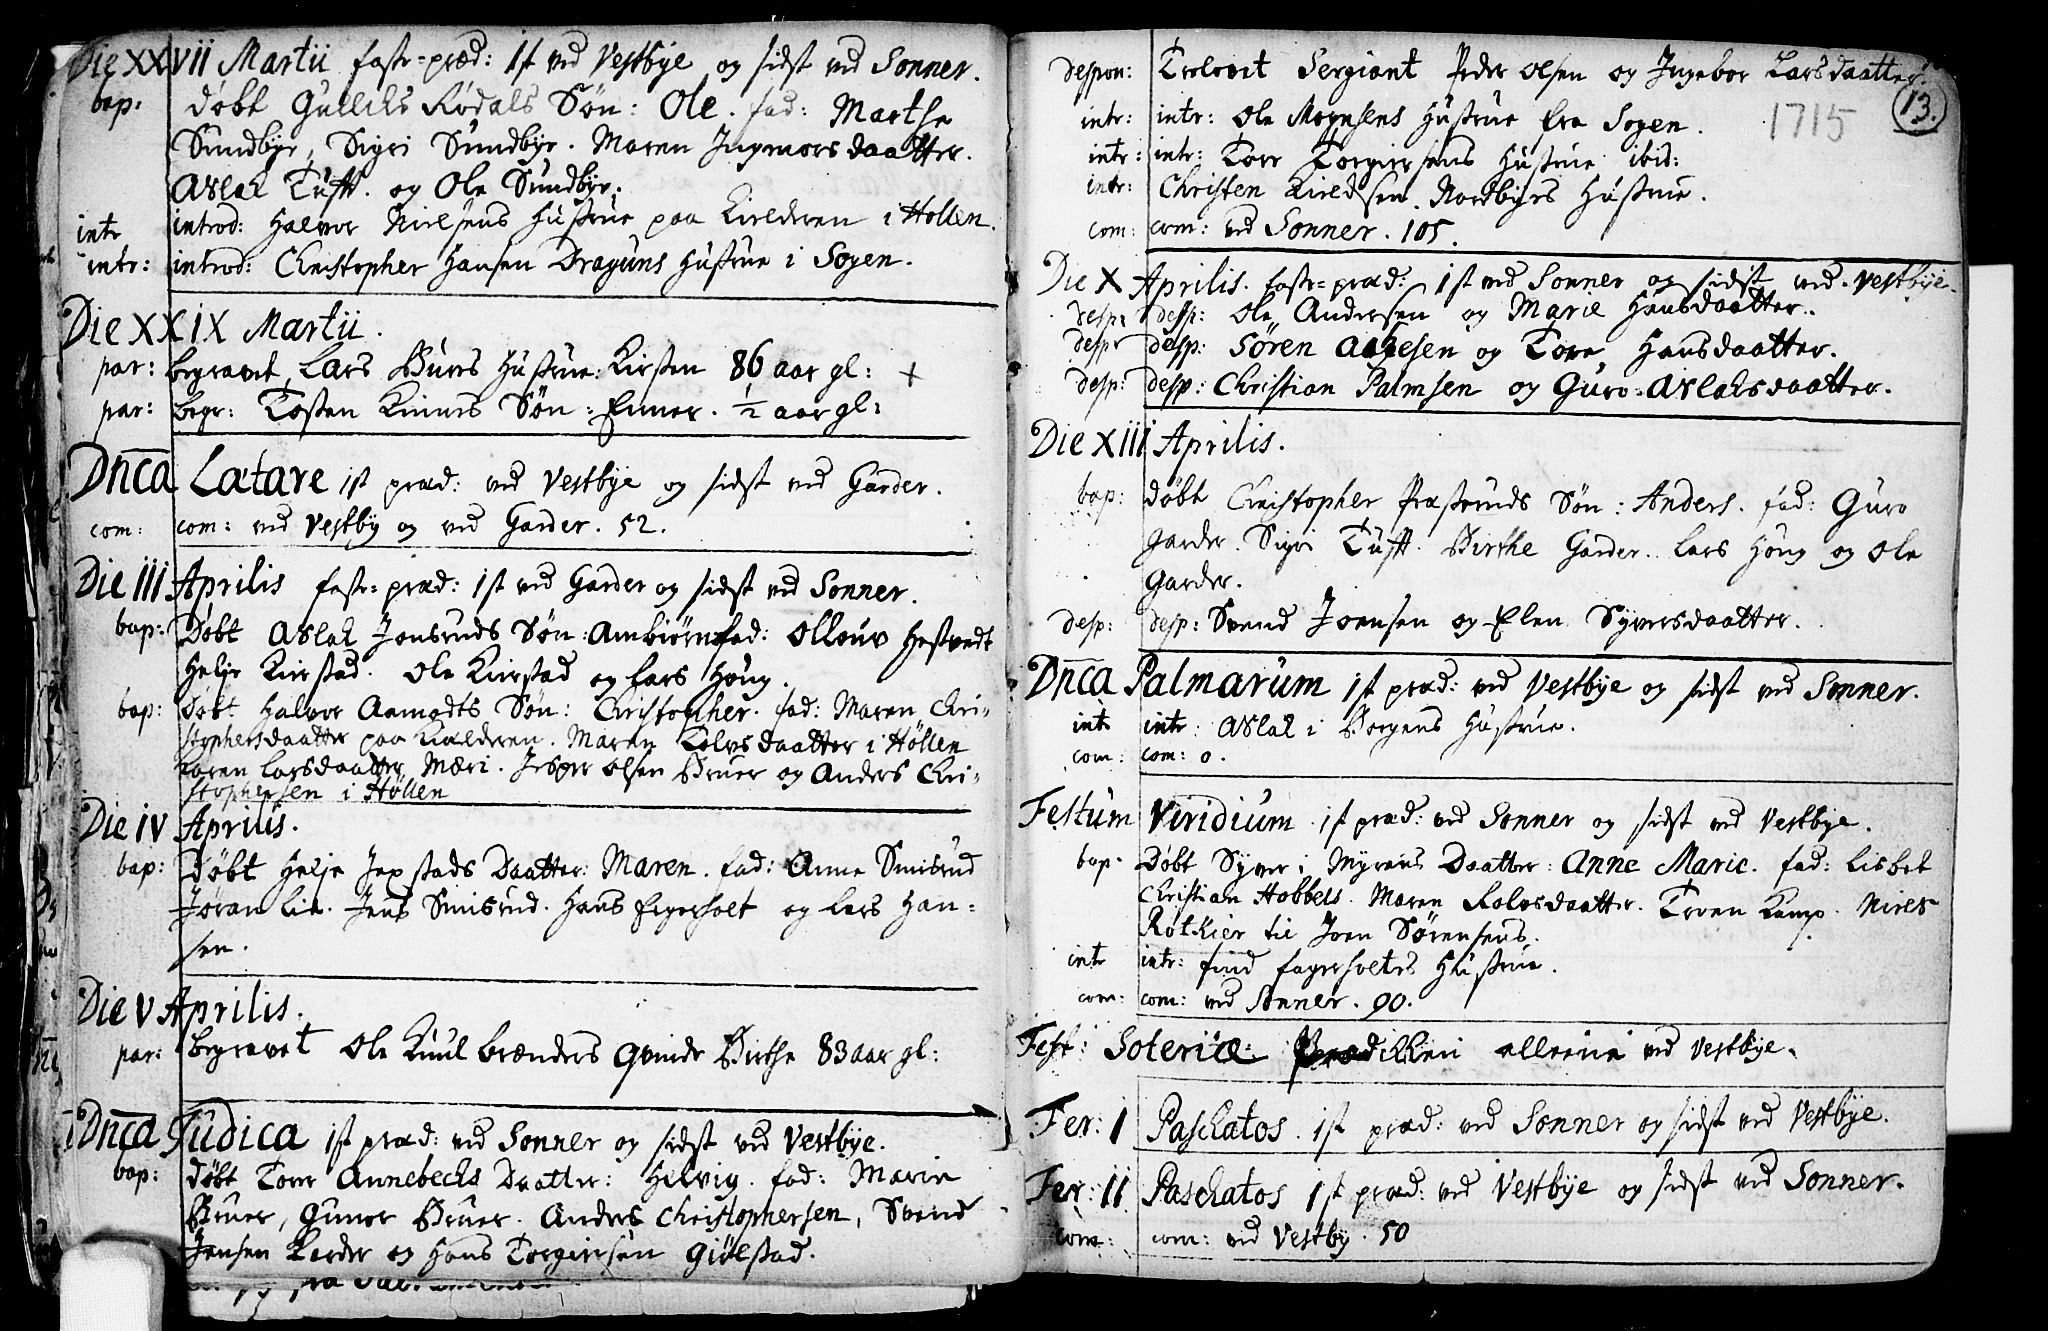 Die XXVII Martii fast-præd: 1st ved Vestbye og sidst ved Sonner.
bap: døbt Gullichs Rødals Søn: Ole. fad: Marthe
Sundbye, Sigri Sundbye. Maren Ingmors daatter.
Aslak Tufft. og Ole Sundbye.
intr introd: Halvor Nielsens Hustrue paa Kielderen i Hollen.
intr: introd: Christopher Hansen Draguns Hustrue i Sogen.
Die XXIX Martii.
par: begravet Lars Burs Hustrue: Kirsten 86 aar gl: +
par: begr: Tosten Kinnes Søn: Enner. 1/2 aar gl:
Dn̄ca Lætare 1st præd: ved Vestbye og sidst ved Garder.
com: com: ved Vestby og ved Garder. 52.
Die III Aprilis fast-præd: 1st ved Garder og sidst ved Sonner.
bap: Døbt Aslak Jonsruds Søn: Ambiørn fad: Olloup Hestvedt
Helje Kirstad. Ole Kirstad og Lars Houg.
bap: døbt Halvor Aamodts Søn: Christopher. fad: Maren Chri-
stophersdaatter paa Kielderen. Maren Tolvsdaatter i Høllen
Karen Larsdaatter Mæri. Jesper Olsen Bruer og Anders Chri-
stophersen i Høllen
Die IV Aprilis.
bap: døbt Helje Jepstads Daatter: Maren. fad: Anne Smisrud
Jøran Lie. Jens Smisrud. Hans Fegerholt og Lars Han-
sen.
Die V Aprilis.
par: begravet Ole Kuulbrænders Qvinde Birthe 83 aar gl:
Dn̄ca Judica 1st præd: ved Sonner og sidst ved Vestbye.
bap: døbt Tore Annebechs Daatter: Helvig. fad: Marie
Bruer, Guner Bruer. Anders Christophersen, Svend
Jensen Karder og Hans Torgiersen Giølstad.
despon: Trolovet Sergiant Peder Olsen og Ingebor Larsdaatter.
13.
1715
intr: intr: Ole Mognsens Hustrue fra Sogen.
intr: intr: Tore Torgiersens Hustrue ibid:
intr: Christen Kieldsen Nordbyes Hustrue.
com: com: ved Sonner. 105.
Die X Aprilis. fast-præd: 1st ved Sonner og sidst ved Vestbye.
desp: desp: Ole Andersen og Marie Hansdaatter.
desp: desp: Søren Aagesen og Tore Hansdaatter.
desp: desp: Christian Palmsen og Guro Aslaksdaatter.
Die XIII Aprilis.
bap: døbt Christopher Præsteruds Søn: Anders. fad: Guro
Garder. Sigri Tufft. Birthe Garder. Lars Houg og Ole
Garder.
desp: desp: Svend Joensen og Elen Syversdaatter.
Dn̄ca Palmarum 1st præd: ved Vestbye og sidst ved Sonner.
intr intr: Aslak i Borgens Hustrue.
com: com: 0.
Festum Viridium 1st præd: ved Sonner og sidst ved Vestbye.
bap: Døbt Syver i Myrens Daatter: Anne Marie. fad: Lisbet
Christian Hobbels. Maren Rolvsdaatter. Troen Kamp. Niels
Røtkier til Joen Sørensens.
intr intr: find fagerholtes Hustrue.
com: com: ved Sonner. 90.
Fest: Soteriæ. Prædikken alleene ved Vestbye.
Fer: I Paschatos. 1st præd: ved Sonner og sidst ved Vestbye.
Fer: II Paschatos 1st præd: ved Vestbye og sidst ved Sonner.
com: com: ved Vestby. 50